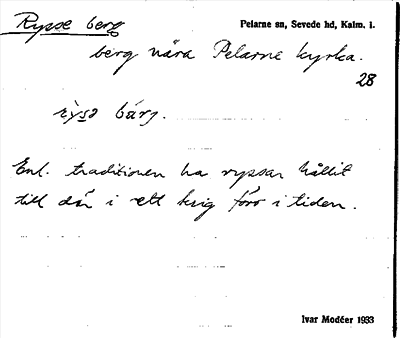 Rysse berg
Pelarne sn, Sevede hd, Kalm. l.
berg nära Pelarne kyrka.
28
rỳsə bárj.
Enl. traditionen ha ryssar hållit
till där i ett krig förr i tiden.
Ivar Modéer 1933